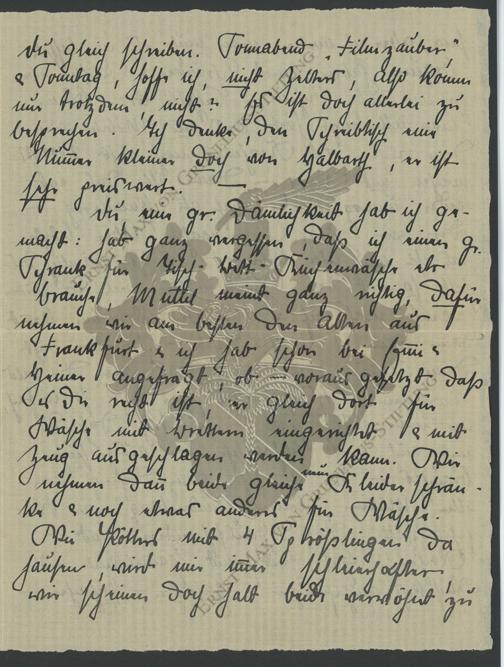 du gleich schreiben. Sonnabend „Filmzauber",
& Sonntag, hoffe ich, nicht Zelters, also komm
nur trotzdem nicht? Es ist doch allerlei zu
besprechen. Ich denke, den Schreibtisch eine
Nummer kleiner doch von Halbarth, er ist
sehr preiswert. —
Du, eine gr. Dämlichkeit hab ich ge-
macht: hab ganz vergessen, daß ich einen gr.
Schrank für Tisch- Bett- Küchenwäsche etc
brauche, Mutti meint ganz richtig, dafür
nehmen wir am besten den alten aus
Frankfurt & ich hab schon bei &
Heiner angefragt, ob – vorausgesetzt daß
es Dir recht ist, er gleich dort für
Wäsche mit Brettern eingerichtet & mit
Zeug ausgeschlagen werden kann. Wir
nehmen dann beide gleiche neue Kleiderschrän-
ke & noch etwas anderes für Wäsche.
Wie Kötters mit 4 Sprößlingen da
hausen, wird mir immer schleierhafter,
wir scheinen doch halt beide verwöhnt zu
ERNST MAX VON GRUNELIUS STIFTUNG